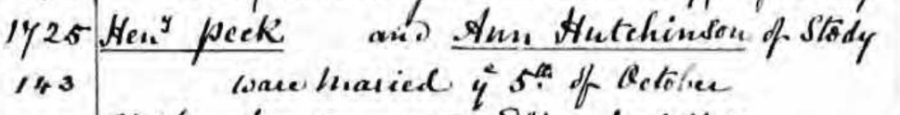 1725 Henʸ Peek and Ann Hutchinson of Stody
143 ware Maried yᵉ 5th. of October